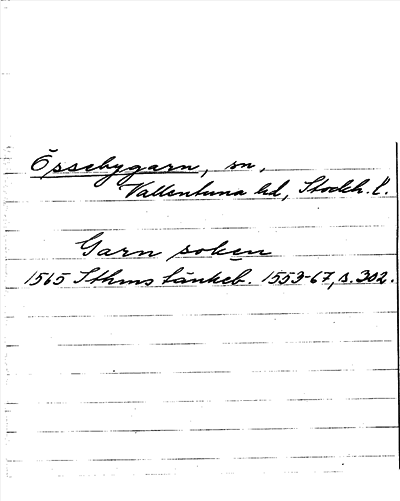 Össebygarn, sn,
Vallentuna hd, Stockh. l.
Garn soken
1565 Sthms tänkeb. 1553-67, s. 302.